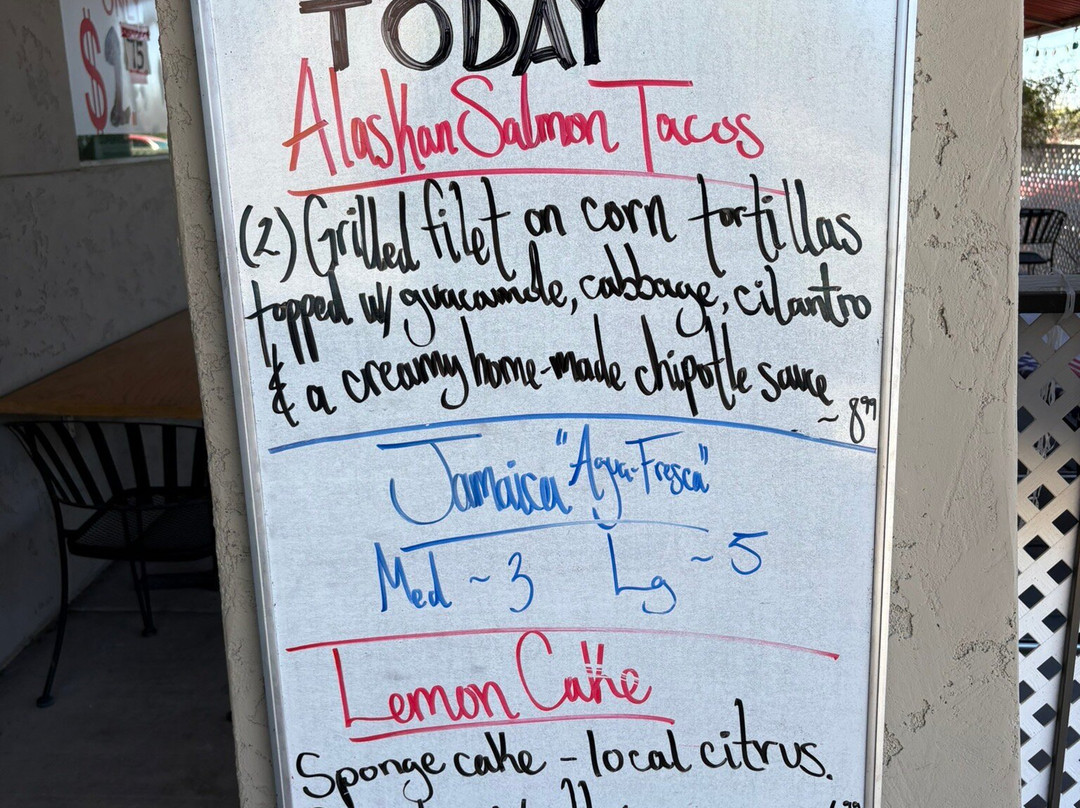 TODAY
Alaskan Salmon Tacos
(2) Grilled filet on corn tortillas
topped w/ guacamole, cabbage, cilantro
& a creamy home-made chipotle sauce ~ 8.99
Jamaica "Agua-Fresca"
Med ~ 3 Lg ~ 5
Lemon Cake
Sponge cake - local citrus.
$
15